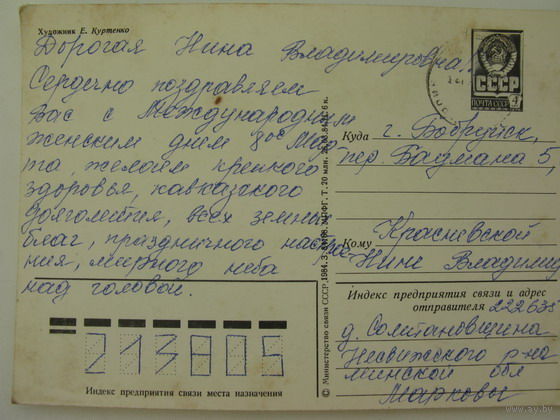 Художник Е. Куртенко
Дорогая Нина Владимировна!
Сердечно поздравляем
Вас с Международным
женским днем 8ое Мар-
та, желаем крепкого
здоровья, кавказкого
долголетия, всех земных
благ, праздничного настрое-
ния, мирного неба
над головой.
213805
Индекс предприятия связи места назначения
© Министерство связи СССР, 1984. З.
ПОЧТА СССР
Куда г. Бобруйск,
пер. Баумана 5,
Кому Красневской
Нине Владими
Индекс предприятия связи и адрес
отправителя 222635
д. Солтановщина
Несвижского р-на
минской обл
Марковы
www.ay.by